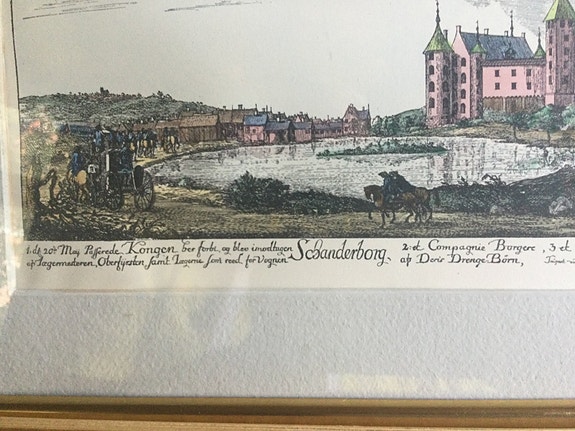 1. de 20de Maj Passerede Kongen her forbi, og blev imodtagen Schanderborg, 2: et Compagnie Borgere, 3 et
af Jægermesteren, Oberfyrsten, samt Jægerne som reed for Vognen af Deris Drenge-Börn,